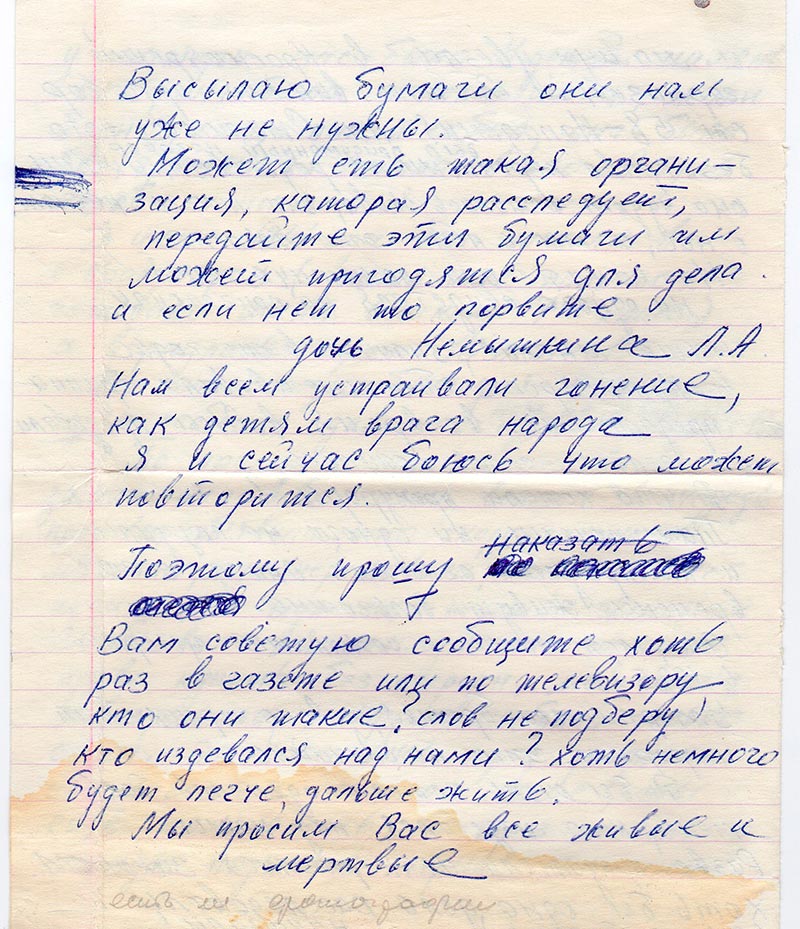 Высылаю бумаги они нам
уже не нужны.
Может еть такая органи-
зация, каторая расследует,
передайте эти бумаги им
может пригодятся для дела.
а если нет то порвите
дочь Немышкина Л.А.
Нам всем устраивали гонение,
как детям врага народа
я и сейчас боюсь что может
повторится.
наказать
Поэтому прошу
Вам советую сообщите хоть
раз в газете или по телевизору
кто они такие? слов не подберу!
кто издевался над нами? хоть немного
будет легче, дальше жить.
Мы просим Вас все живые и
мертвые
есть ли фотографии